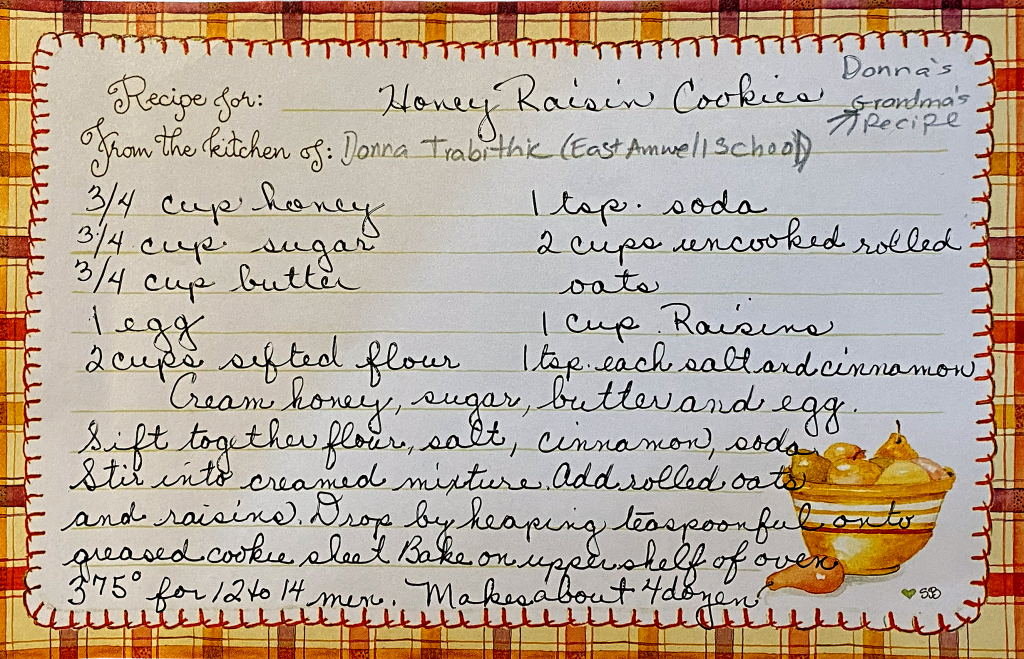 Recipe for: Honey Raisin Cookies
Donna's
Grandma's
Recipe
From the kitchen of: Donna Trabithic (East Amwell School)
3/4 cup honey
3/4 cup sugar
3/4 cup butter
1 egg
2 cups sifted flour
1 tsp. soda
2 cups uncooked rolled
oats
1 cup Raisins
1 tsp. each salt and cinnamon
Cream honey, sugar, butter and egg.
Sift together flour, salt, cinnamon, soda
Stir into creamed mixture. Add rolled oats
and raisins. Drop by heaping teaspoonful onto
greased cookie sleet Bake on upper shelf of oven
375° for 12 to 14 men. Makes about 4 dozen
SB